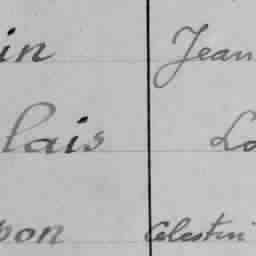 in Jean
lais Lo
pon Celestin